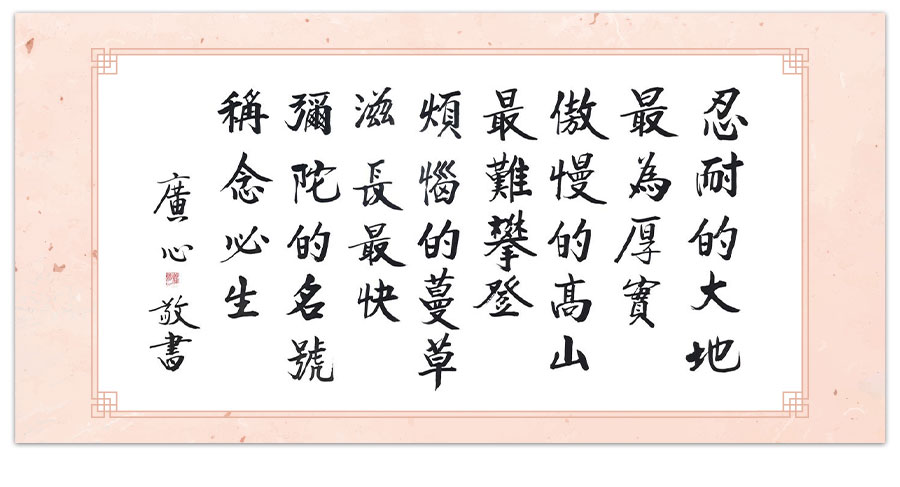 忍耐的大地
最為厚實
傲慢的高山
最難攀登
煩惱的蔓草
滋長最快
彌陀的名號
稱念必生
廣心 敬書